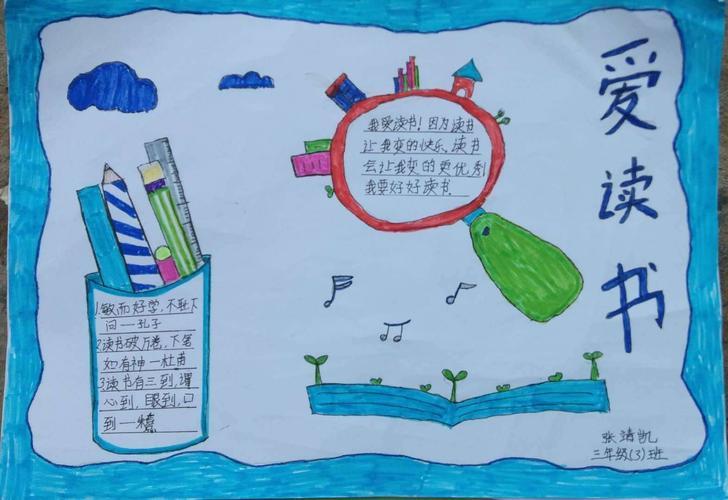 爱读书
我爱读书！因为读书
让我变的快乐、读书
会让我变的更优秀
我要好好读书.
1.敏而好学，不耻下
问一孔子
2.读书破万卷，下笔
如有神一杜甫
3.读书有三到，谓
心到，眼到，口
到一
张靖凯
三年级(3)班